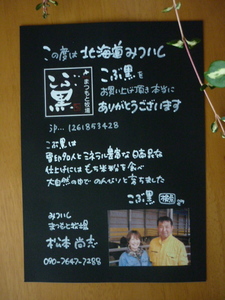 この度は 北海道みついし
こぶ黒を
お買い上げ頂き 本当に
ありがとうございます
まつもと牧場
こぶ黒
jp... 1261853428
こぶ黒は
愛情タップリとミネラル豊富な日高昆布
仕上げには もち米などを食べ
大自然の中で のんびりと育ちました
こぶ黒
みついし
まつもと牧場
松本 尚志
090-7647-7288